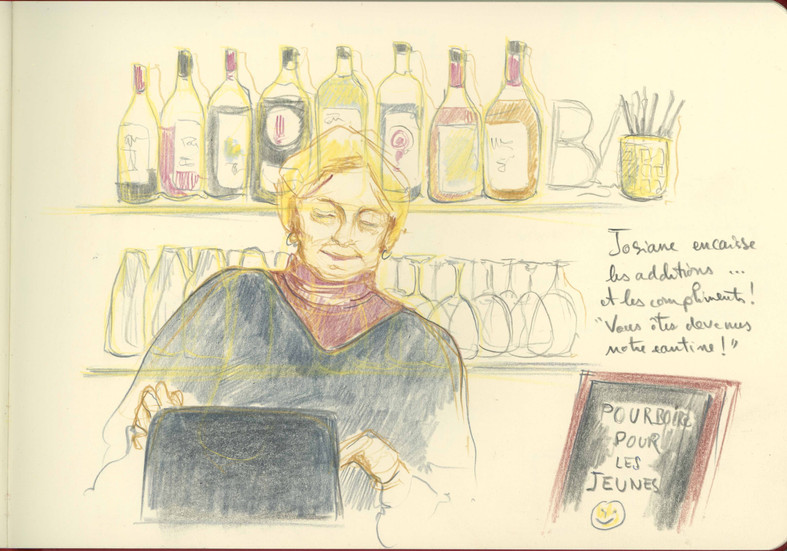 BA
Josiane encaisse
les additions ...
et les compliments !
"Vous êtes devenus
notre cantine !"
POURBOIRE
POUR
LES
JEUNES